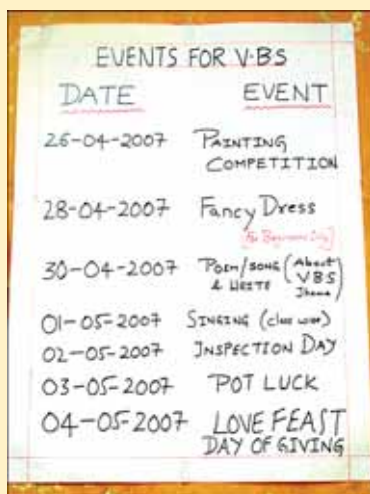 EVENTS FOR V.B.S
DATE EVENT
26-04-2007 PAINTING
COMPETITION
28-04-2007 Fancy Dress
(For Beginners Only)
30-04-2007 POEM/SONG (About
& WRITE VBS
Theme)
01-05-2007 SINGING (class wise)
02-05-2007 INSPECTION DAY
03-05-2007 POT LUCK
04-05-2007 LOVE FEAST
DAY OF GIVING